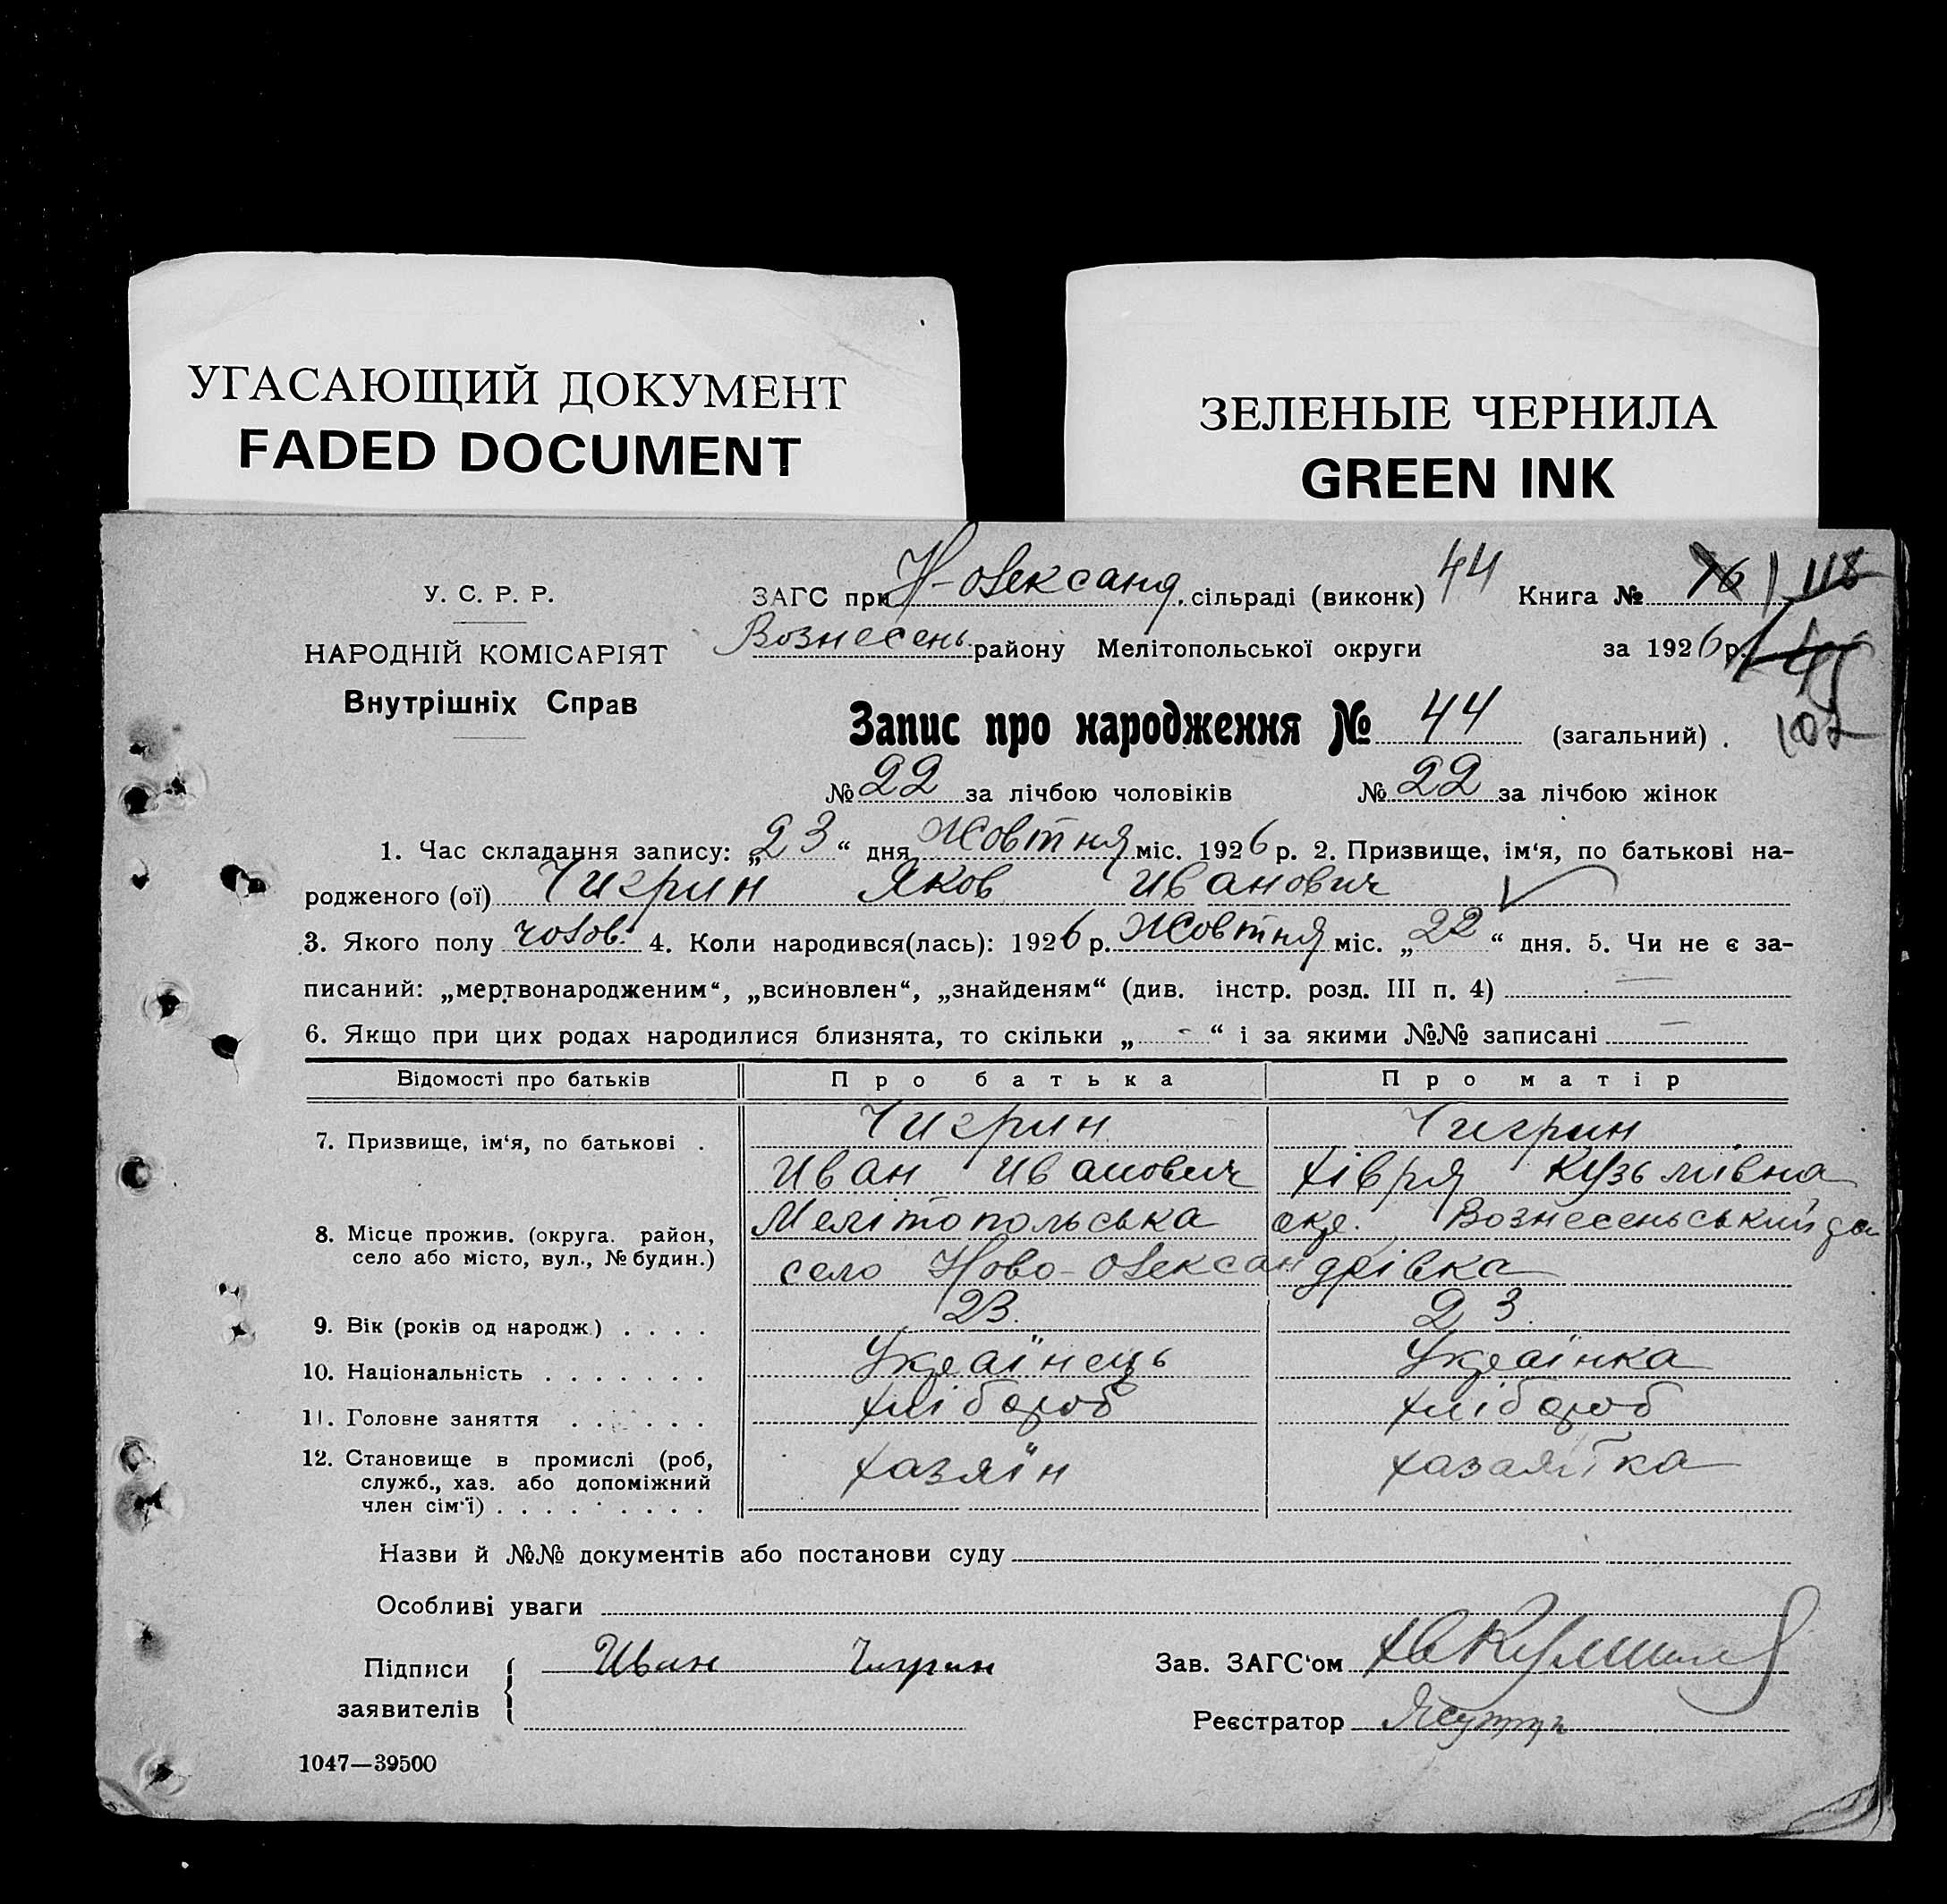 УГАСАЮЩИЙ ДОКУМЕНТ
FADED DOCUMENT
ЗЕЛЕНЫЕ ЧЕРНИЛА
GREEN INK
У. С. Р. Р.
НАРОДНІЙ КОМІСАРІЯТ
Внутрішніх Справ
ЗАГС при Н-Олександ. сільраді (виконк) 44 Книга № 16 118
Вознесень. району Мелітопольської округи за 1926 р.
107
Запис про народження № 44 (загальний).
№ 22 за лічбою чоловіків № 22 за лічбою жінок
1. Час складання запису: „23“ дня Жовтня міс. 1926 р. 2. Призвище, ім‘я, по батькові на-
родженого (ої) Чигрин Яков Иванович
3. Якого полу чолов. 4. Коли народився(лась): 1926 р. Жовтня міс. „22“ дня. 5. Чи не є за-
писаний: „мертвонародженим“, „всиновлен“, „знайденям“ (див. інстр. розд. III п. 4) —
6. Якщо при цих родах народилися близнята, то скільки „ - “ і за якими №№ записані —
Відомості про батьків Про батька Про матір
7. Призвище, ім‘я, по батькові . Чигрин Чигрин
Иван Иванович Хівря Кузьмівна
8. Місце прожив. (округа. район, Мелітопольська окр. Вознесенський
село або місто, вул., № будин.) село Ново-Олександрівка
9. Вік (років од народж) . . . . 23. 23.
10. Національність . . . . . . . Українець Українка
11. Головне заняття . . . . . . хлібороб хлібороб
12. Становище в промислі (роб, хазяїн хазяйка
служб., хаз. або допоміжний
член сім‘ї) . . . . . . . . .
Назви й №№ документів або постанови суду
Особливі уваги
Підписи Иван Чигрин Зав. ЗАГС‘ом
заявителів Реєстратор
1047—39500